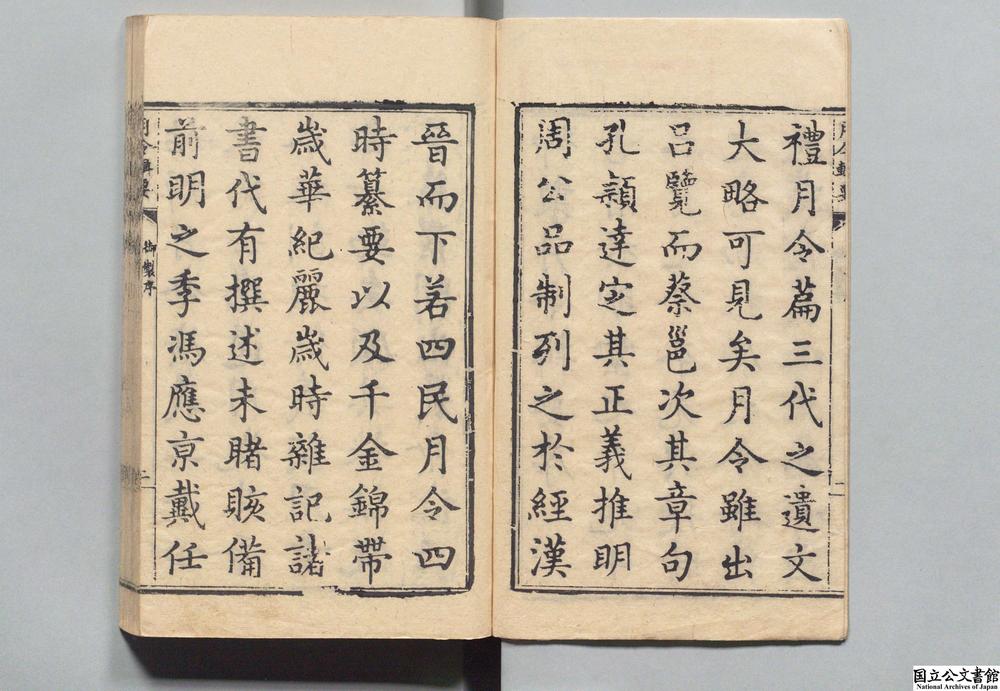 禮月令篇三代之遺文
大略可見矣月令雖出
呂覽而蔡邕次其章句
孔穎達定其正義推明
周公品制列之於經漢
晉而下若四民月令四
時纂要以及千金錦帶
歲華紀麗歲時雜記諸
書代有撰述未睹賅備
前明之季馮應京戴任
御製序
国立公文書館
National Archives of Japan